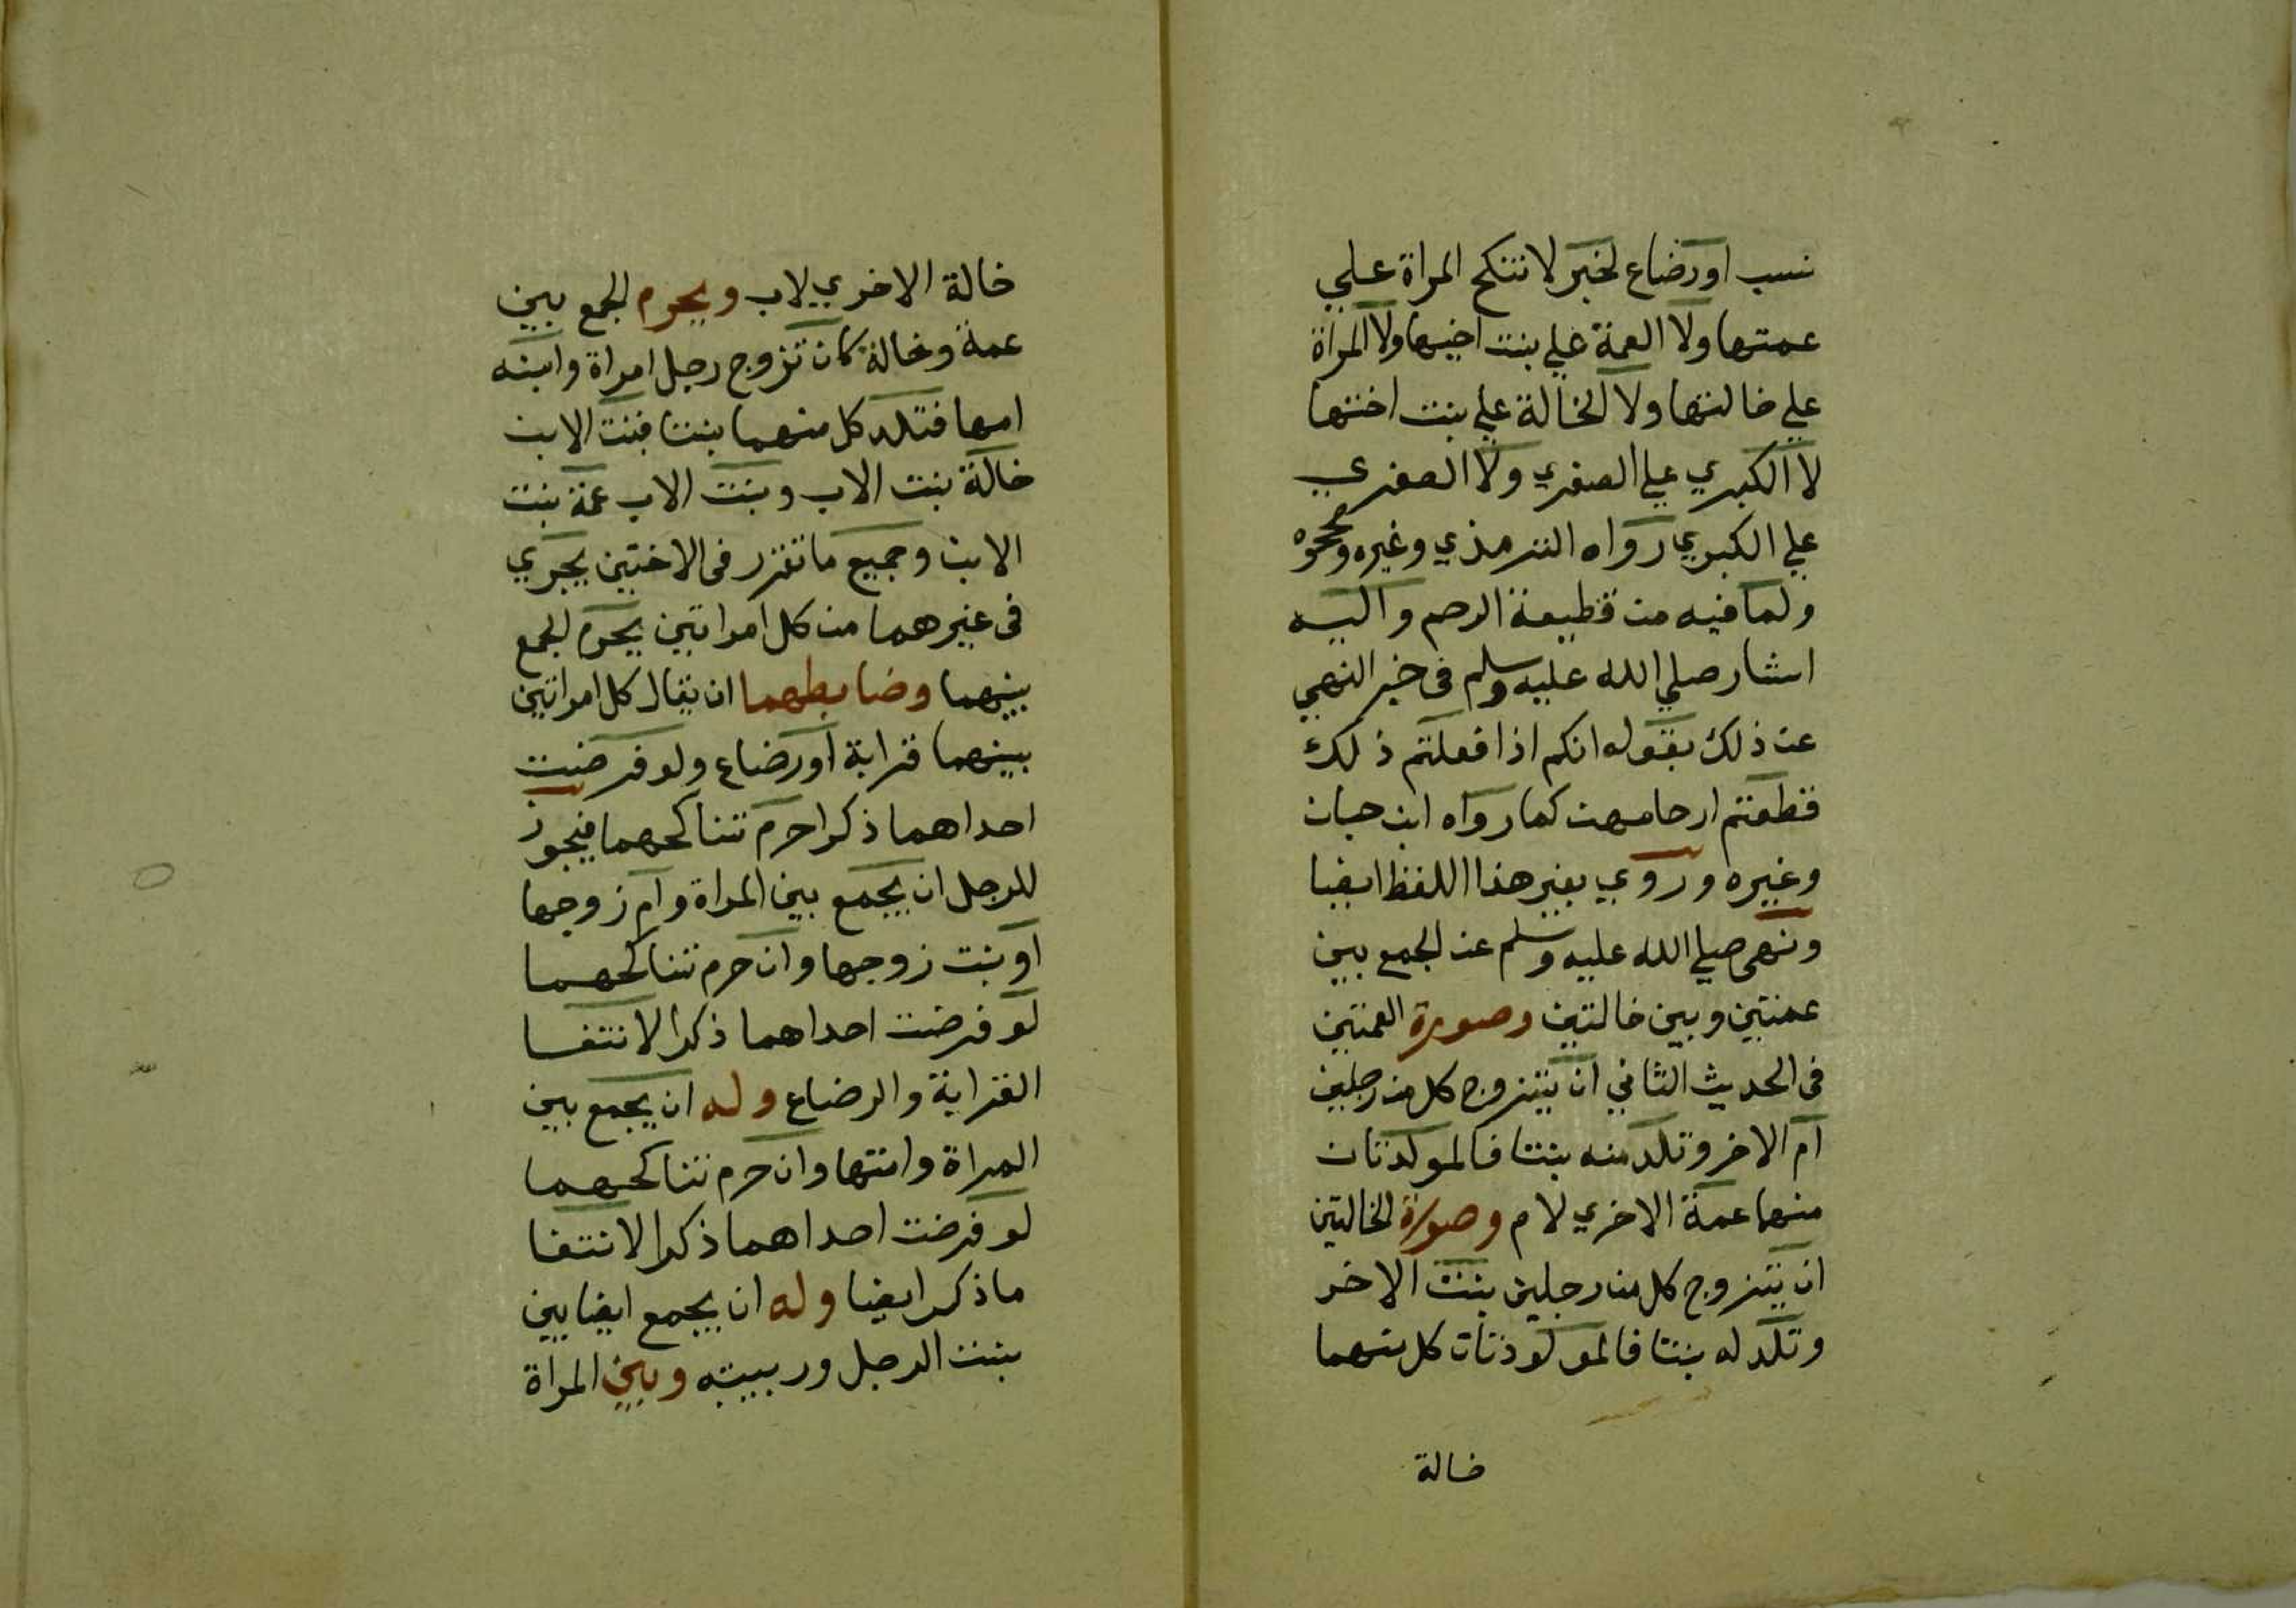 نسب اورضاع لخبر لا تنكح المراة علي
عمتها ولا العمة علي بنت اخيها ولا المراة
علي خالتها ولا الخالة علي بنت اختها
لا الكبري علي الصغري ولا الصغري
علي الكبري رواه الترمذي وغيره وصححوه
ولما فيه من قطيعة الرحم واليه
اشار صلي الله عليه وسلم في خبر النهي
عن ذلك بقوله انكم اذا فعلتم ذلك
قطعتم ارحامهن كما رواه ابن حبان
وغيره وروي بغير هذا اللفظ ايضا
ونهي صلي الله عليه وسلم عن الجمع بين
عمتين وبين خالتين وصورة العمتين
في الحديث الثاني ان يتزوج كل من رجلين
ام الاخر وتلد منه بنتا فالمولدتان
منهما عمة الاخري لام وصورة الخالتين
ان يتزوج كل من رجلين بنت الاخر
وتلد له بنتا فالمولودتان كل منهما
خالة
خالة الاخري لاب ويحرم الجمع بين
عمة وخالة كان تزوج رجل امراة وابنه
امها فتلد كل منهما بنتا فبنت الابن
خالة بنت الاب وبنت الاب عمة بنت
الابن وجميع ما تقرر في الاختين يجري
في غيرهما من كل امراتين يحرم الجمع
بينهما وضابطهما ان يقال كل امراتين
بينهما قرابة اورضاع ولو فرضت
احداهما ذكرا حرم تناكحهما فيجوز
للرجل ان يجمع بين المراة وام زوجها
او بنت زوجها وان حرم تناكحهما
لو فرضت احداهما ذكرا لانتفا
القرابة والرضاع وله ان يجمع بين
المراة وامتها وان حرم تناكحهما
لو فرضت احداهما ذكرا لانتفا
ما ذكر ايضا وله ان يجمع ايضا بين
بنت الرجل وربيبته وبين المراة